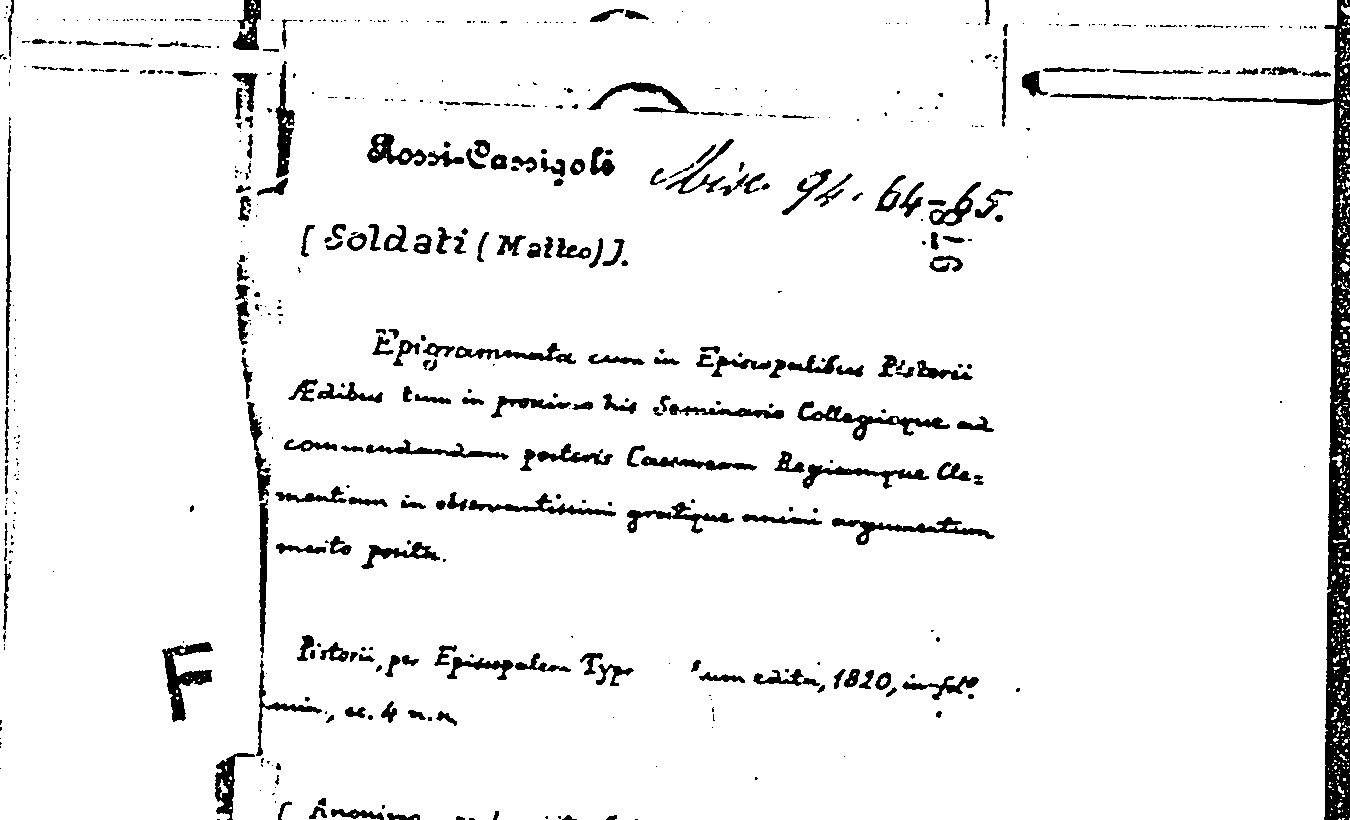 Rossi-Cassigoli Misc. 94. 64-65.
[Soldati (Matteo)].
Epigrammata cum in Episcopalibus Pistorii
Ædibus tum in proximo his Seminario Collegioque ad
commendandam posteris Caesaream Regiamque Cle=
mentiam in observantissimi gratique animi argumentum
merito posita.
Pistorii, per Episcopalem um edita, 1820, in-folº
min., cc. 4 n.n.
F
[Anonimo